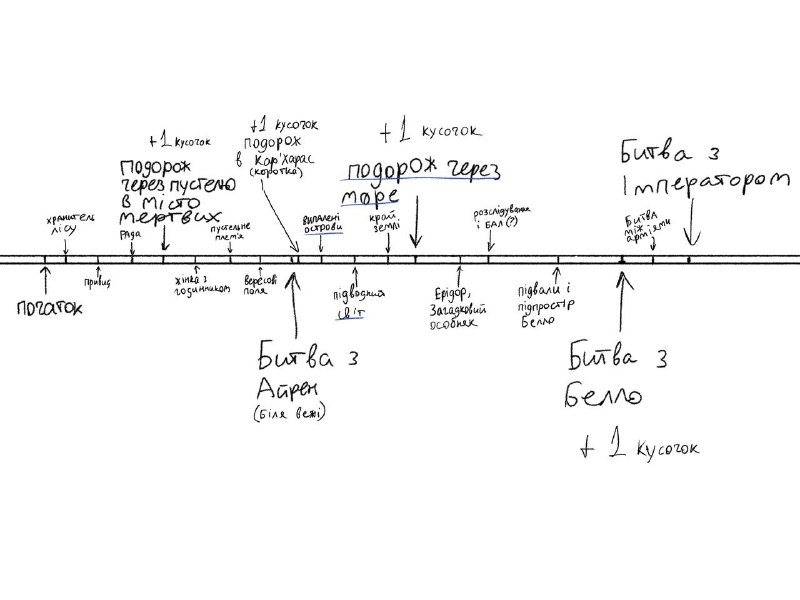 +1 кусочок
Подорож
через пустелю
в місто
мертвих
+1 кусочок
подорож
в Кар'Харас
(коротка)
+1 кусочок
подорож через
море
Битва з
Імператором
хранитель
лісу
Рада
пустельне
плем'я
випалені
острови
край
землі
розслідування
і БАЛ(?)
Битва
між
арміями
початок
привид
жінка з
годинником
вересові
поля
підводний
світ
Ерідор,
Загадковий
особняк
підвали і
підпростір
Белло
Битва з
Айрен
(біля вежі)
Битва з
Белло
+1 кусочок